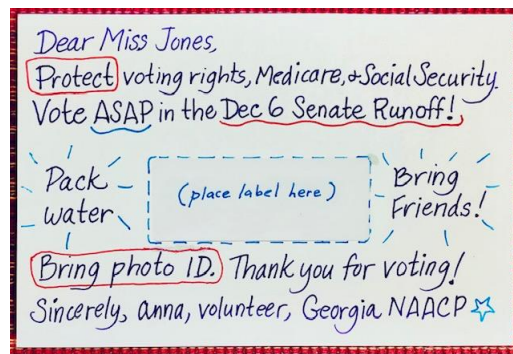 Dear Miss Jones,
Protect voting rights, Medicare, + Social Security.
Vote ASAP in the Dec 6 Senate Runoff!
Pack
water
(place label here)
Bring
Friends!
Bring photo ID. Thank you for voting!
Sincerely, anna, volunteer, Georgia NAACP